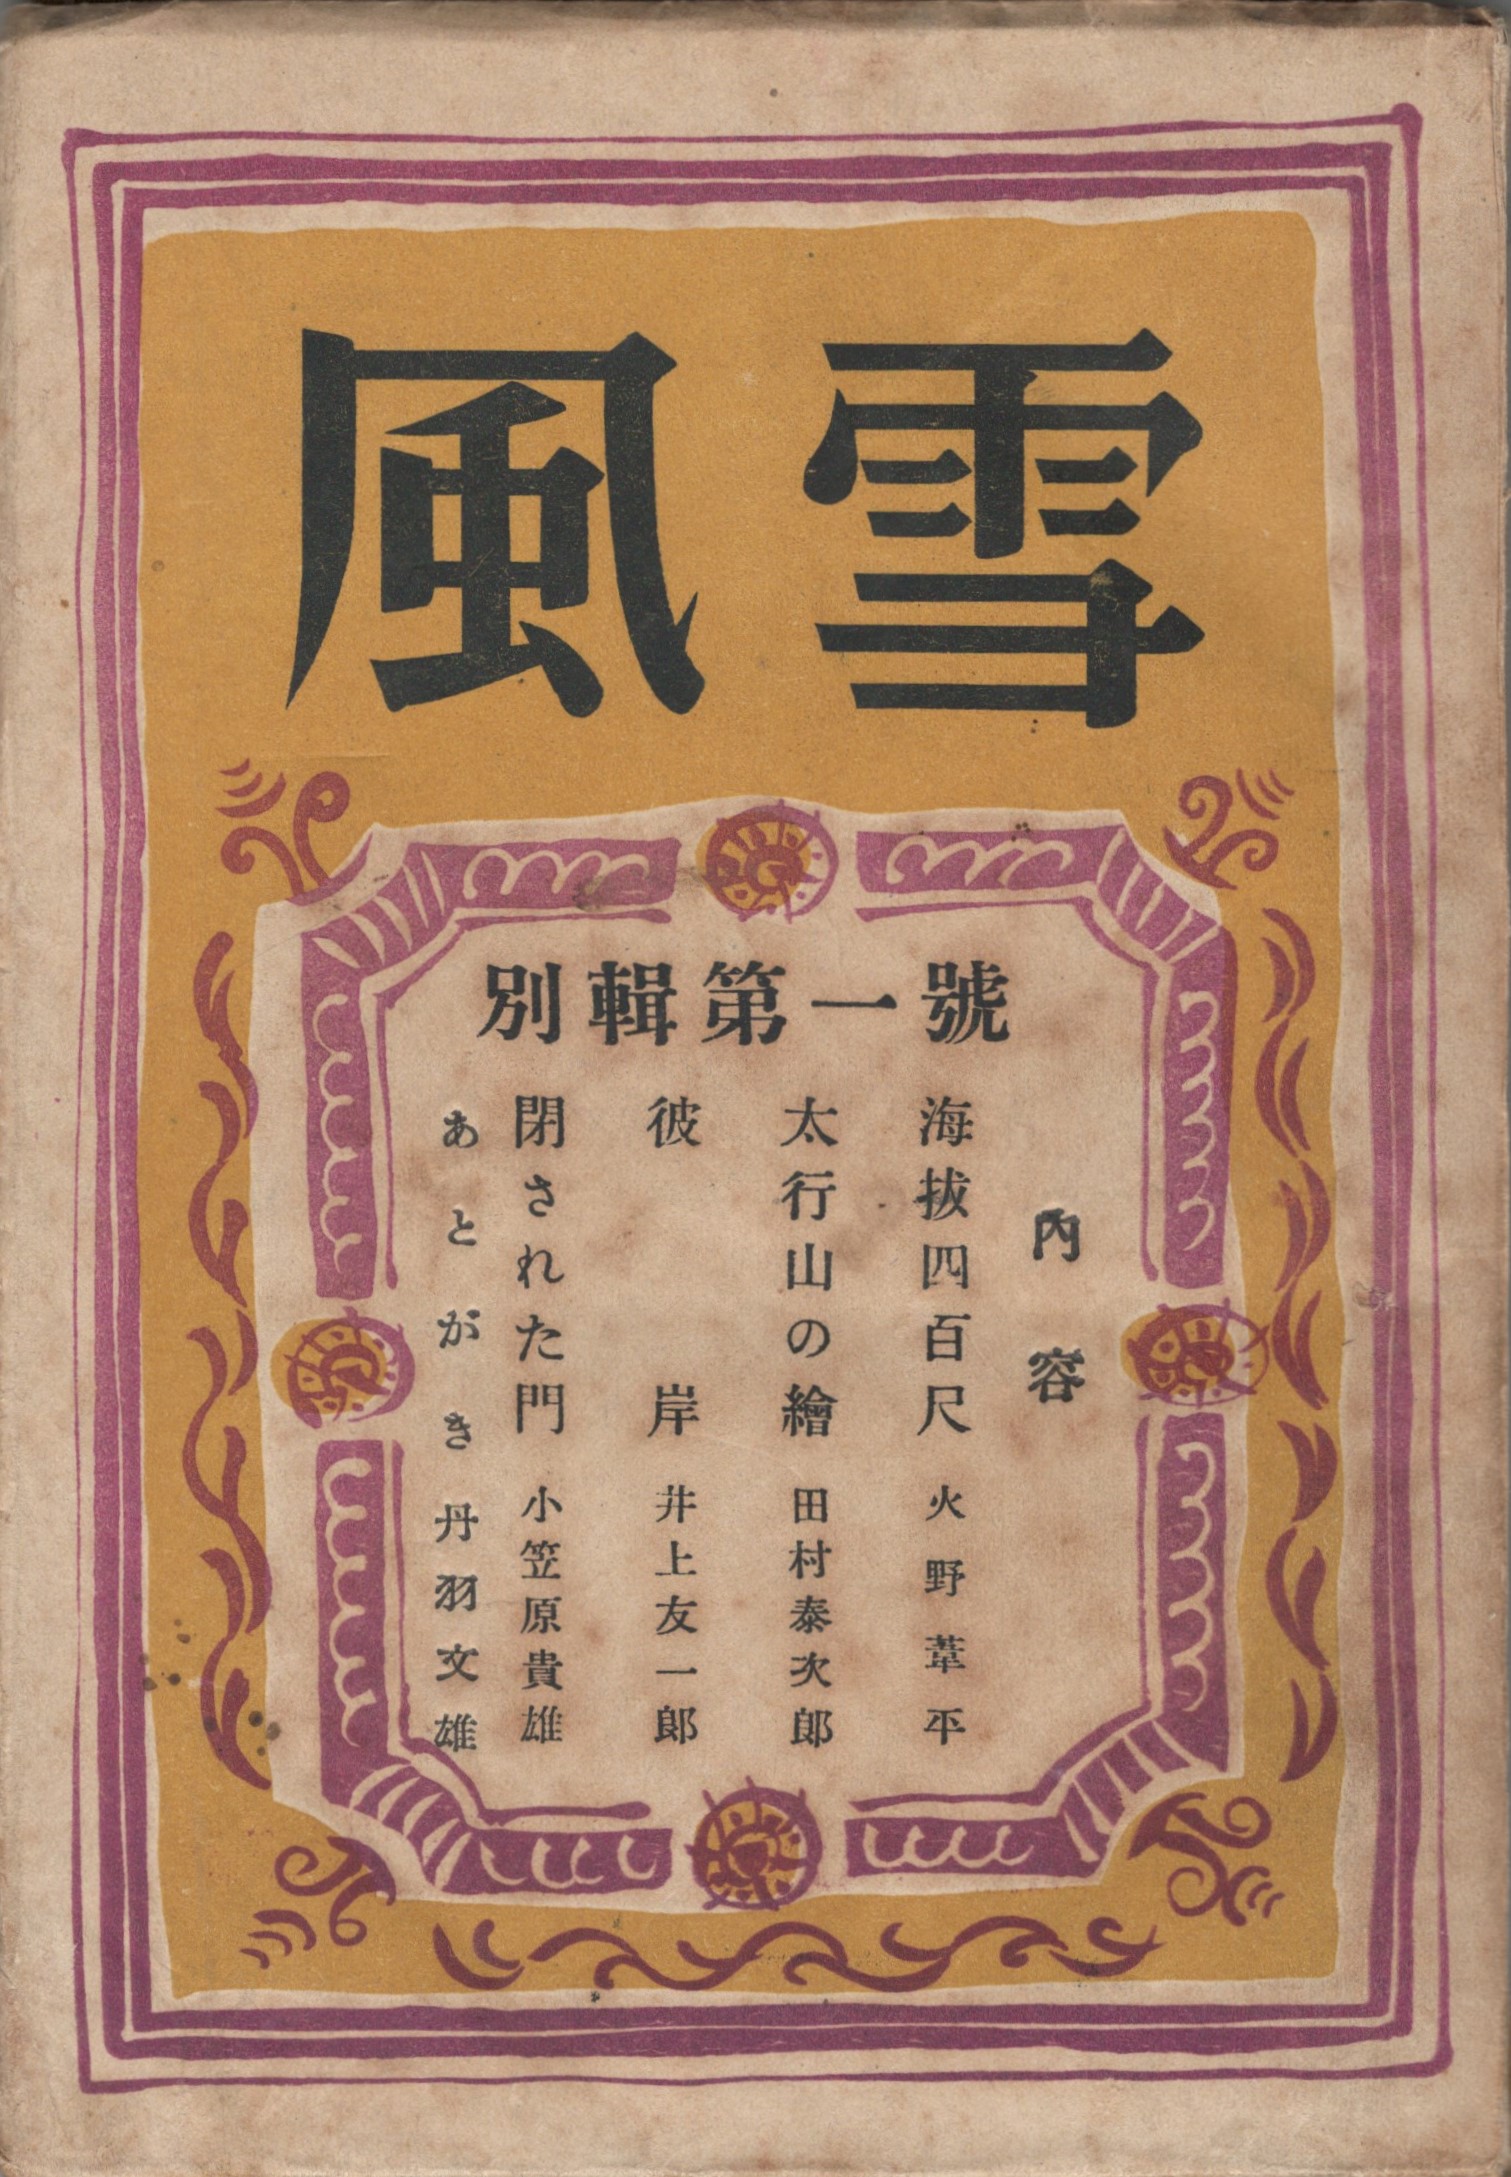 風雪
別輯第一號
內容
海拔四百尺 火野葦平
太行山の繪 田村泰次郎
彼岸 井上友一郎
閉された門 小笠原貴雄
あとがき 丹羽文雄